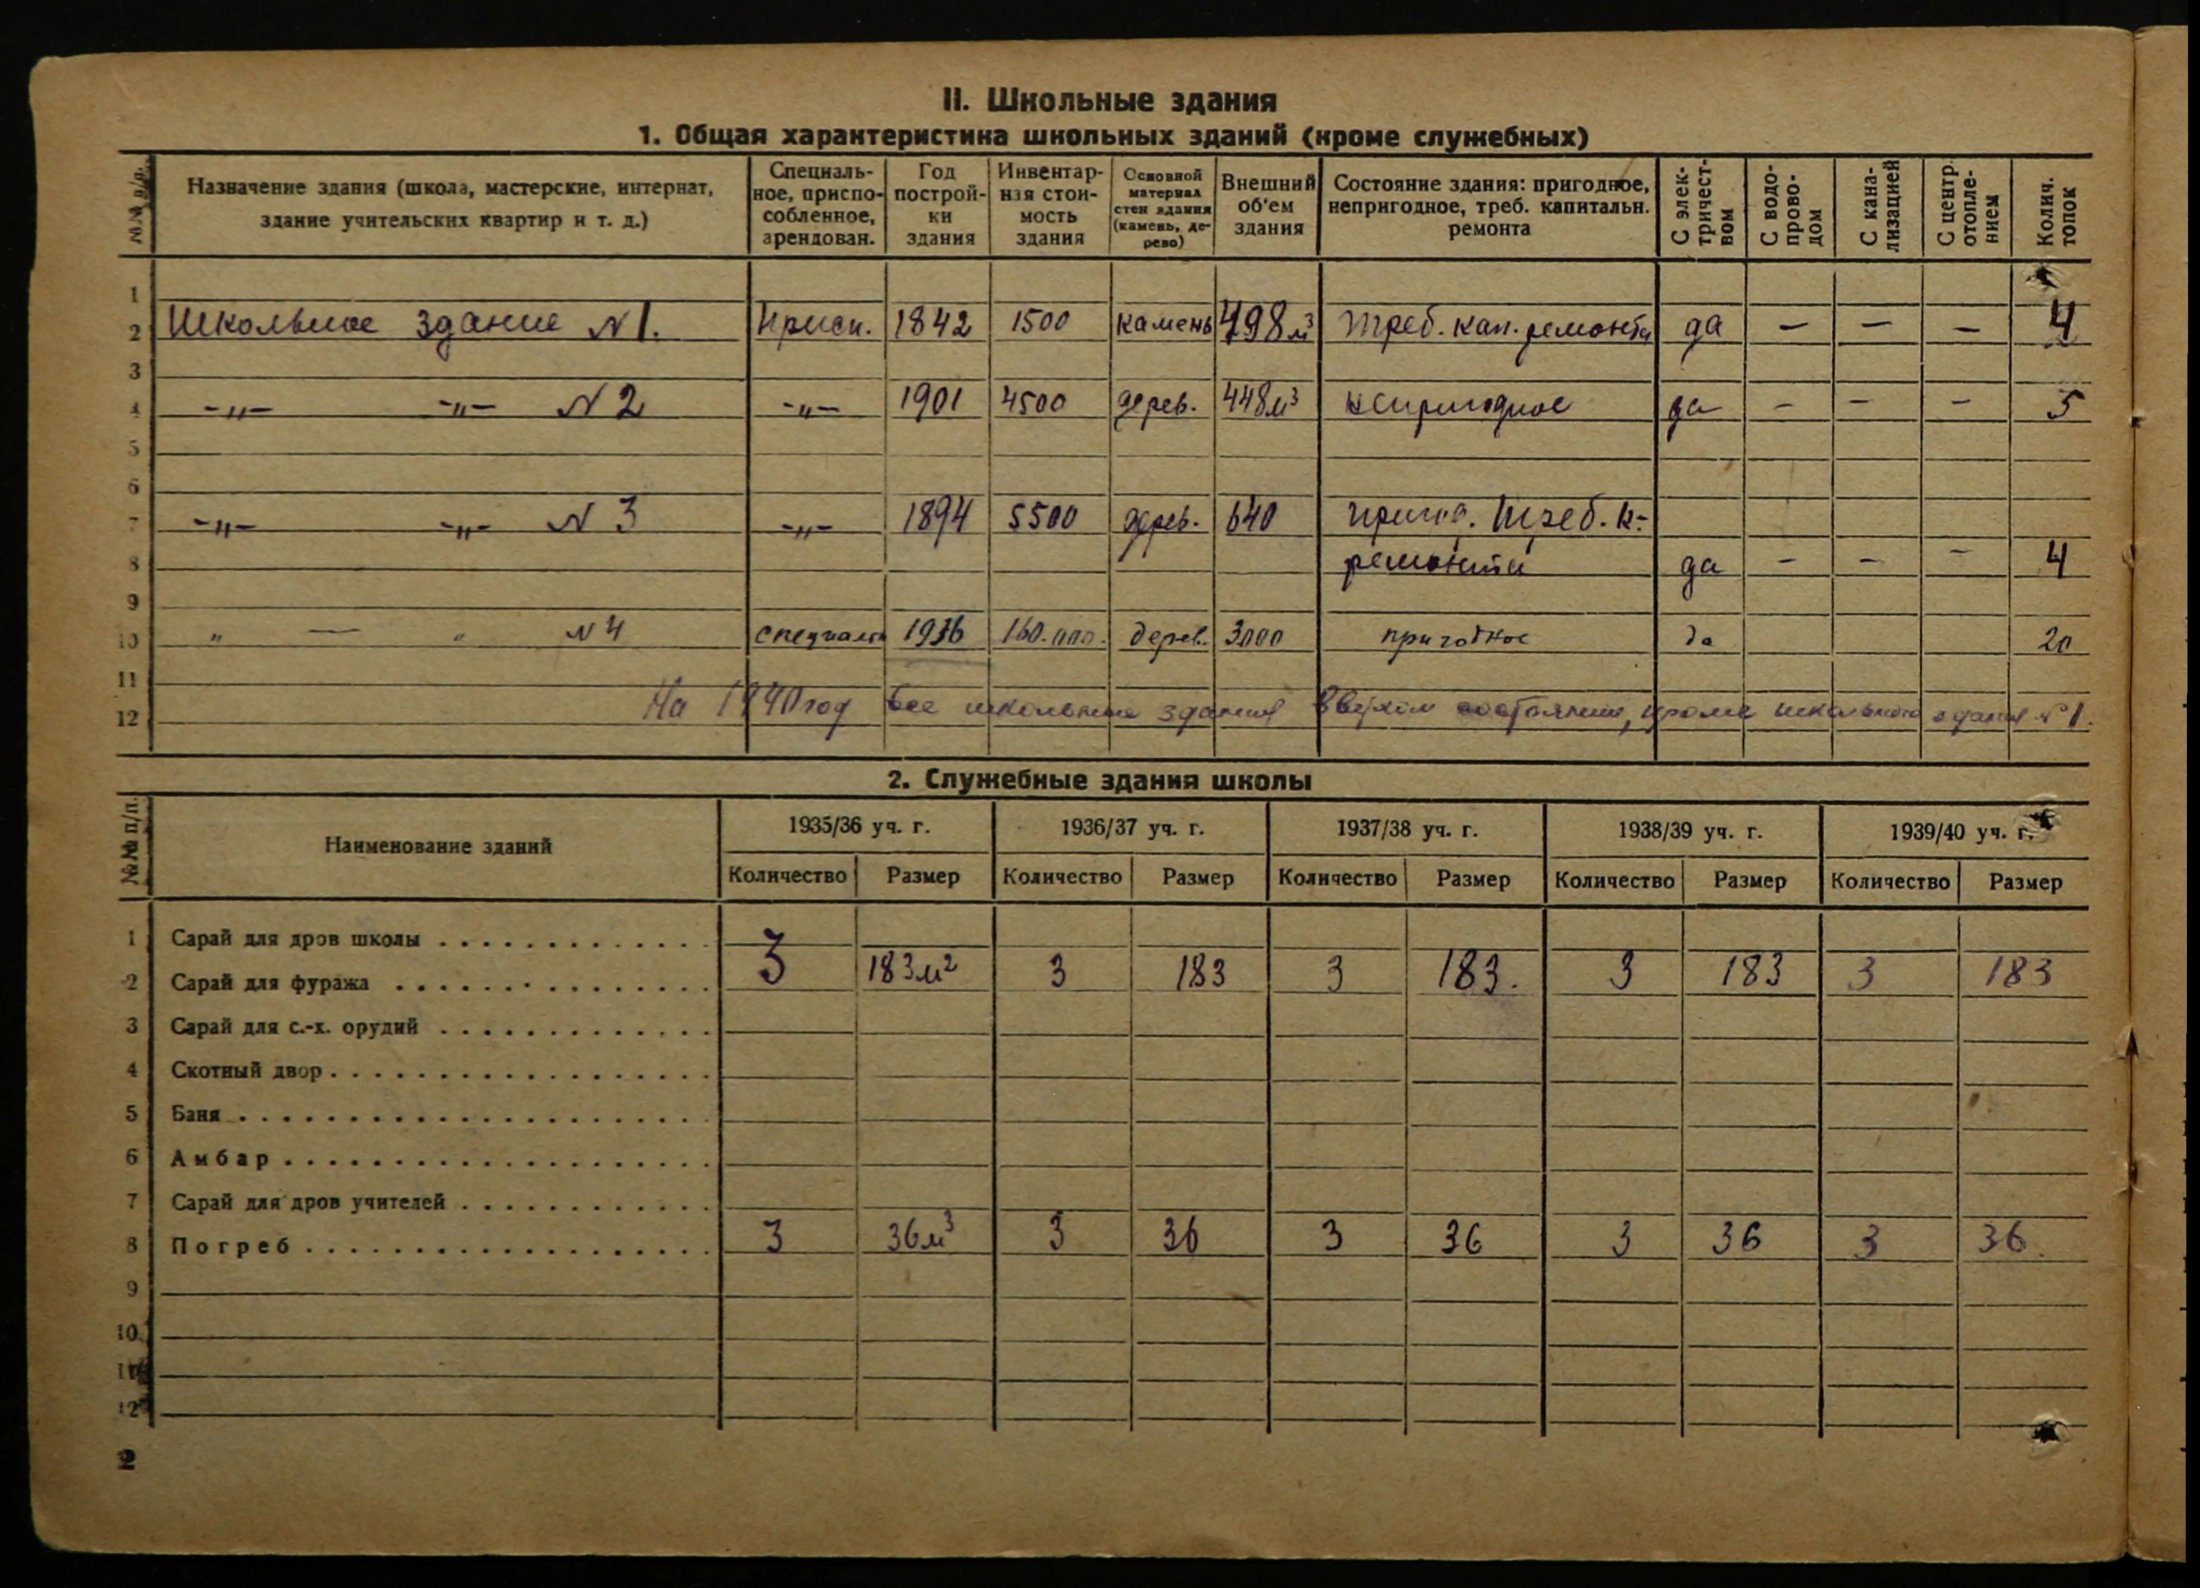 II. Школьные здания
1. Общая характеристика школьных зданий (кроме служебных)
№№ п/п. Назначение здания (школа, мастерские, интернат, здание учительских квартир и т. д.) Специальное, приспособленное, арендован. Год постройки здания Инвентарная стоимость здания Основной материал стен здания (камень, дерево) Внешний об'ем здания Состояние здания: пригодное, непригодное, треб. капитальн. ремонта С электричеством С водопроводом С канализацией С центр. отоплением Колич. топок
1
2 Школьное здание N1. Присп. 1842 1500 камень 498 м³ треб. кап. ремонта да — — — 4
3
4 -„- -„- N2 -„- 1901 4500 дерев. 448м³ непригодное да — — — 5
5
6
7 -„- -„- N3 -„- 1894 5500 дерев. 640 пригод. треб. к-
8 ремонта да — — — 4
9
10 „ — „ N4 специальн 1936 160.000. дерев. 3000 пригодное да 20
11
12 На 1940 год все школьные здания в состоянии, кроме школьного здания №1.
2. Служебные здания школы
№№ п/п. Наименование зданий 1935/36 уч. г. 1936/37 уч. г. 1937/38 уч. г. 1938/39 уч. г. 1939/40 уч. г.
Количество Размер Количество Размер Количество Размер Количество Размер Количество Размер
1 Сарай для дров школы
2 Сарай для фуража 3 183м² 3 183 3 183. 3 183 3 183
3 Сарай для с.-х. орудий
4 Скотный двор
5 Баня
6 Амбар
7 Сарай для дров учителей
8 Погреб 3 36м³ 3 36 3 36 3 36 3 36.
9
10
11
12
2